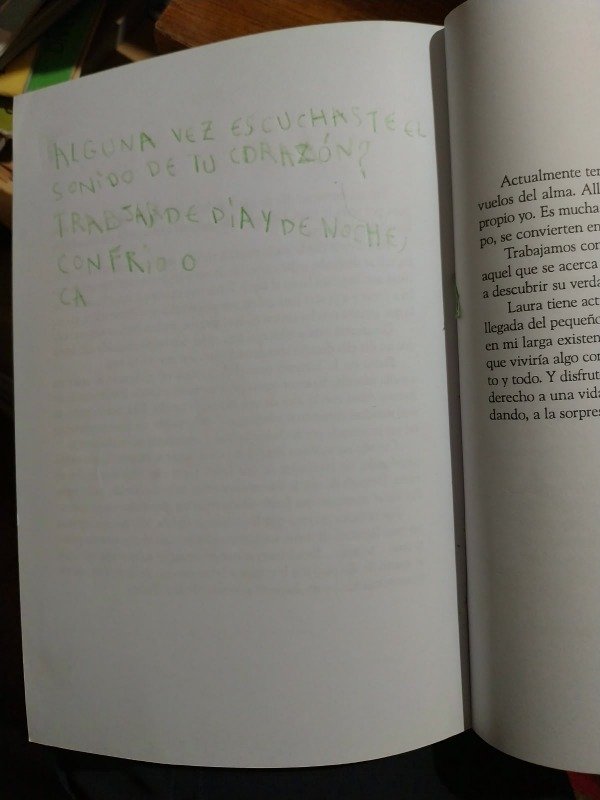 ALGUNA VEZ ESCUCHASTE EL
SONIDO DE TU CORAZÓN?
TRABJAR DE DíA Y DE NOCHE,
CON FRiO O
CA
Actualmente ter
vuelos del alma. All
propio yo. Es mucha
po, se convierten en
Trabajamos con
aquel que se acerca
a descubrir su verda
Laura tiene act
llegada del pequeño
en mi larga existen
que viviría algo con
to y todo. Y disfrut
derecho a una vida
dando, a la sorpres